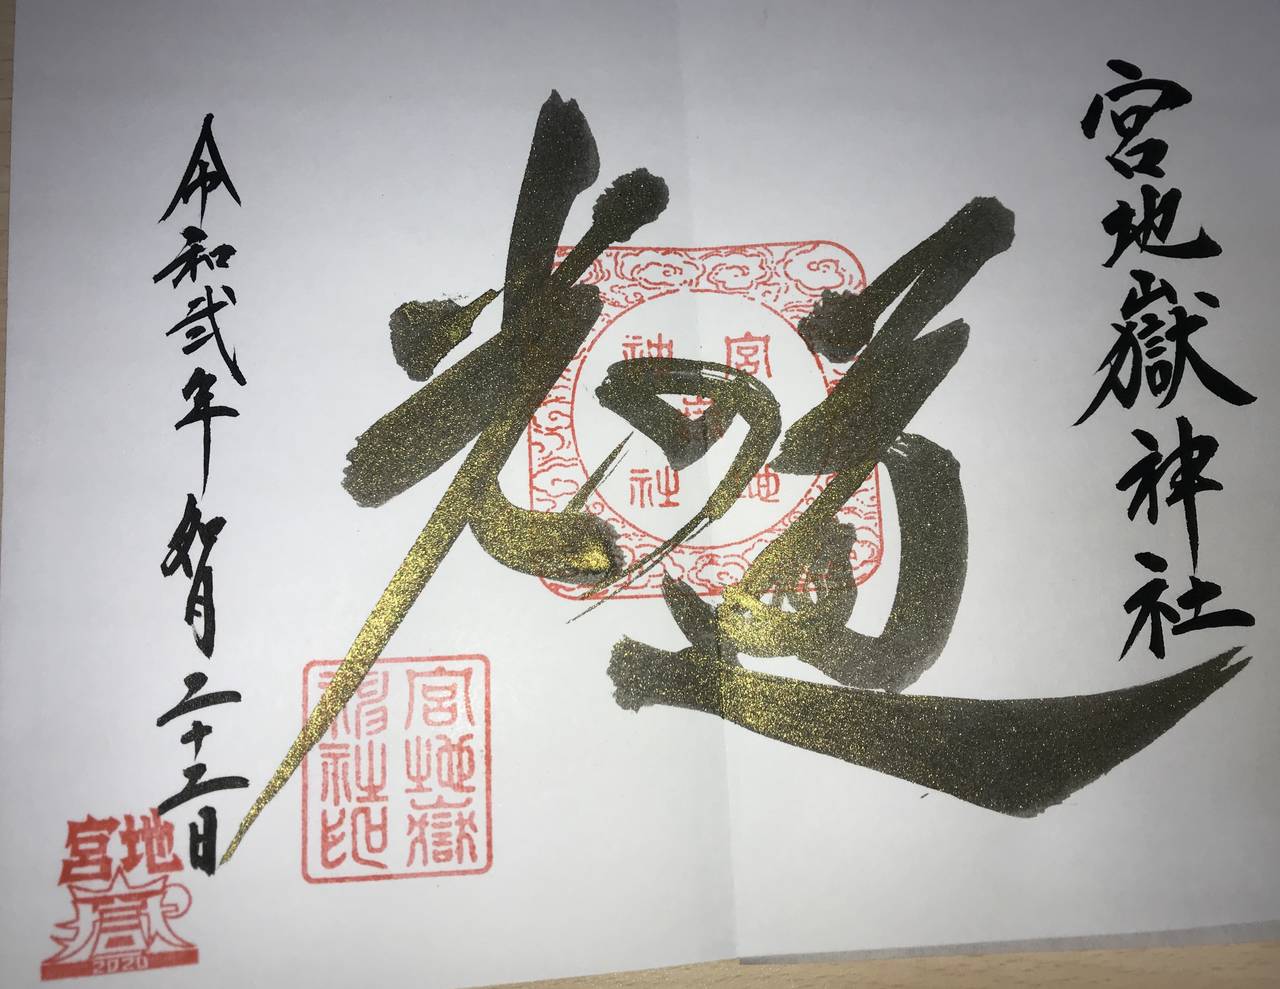 宮地嶽神社
光の道
令和弐年如月二十三日
宮地嶽神社
宮地嶽
神社印
宮地
嶽
2020